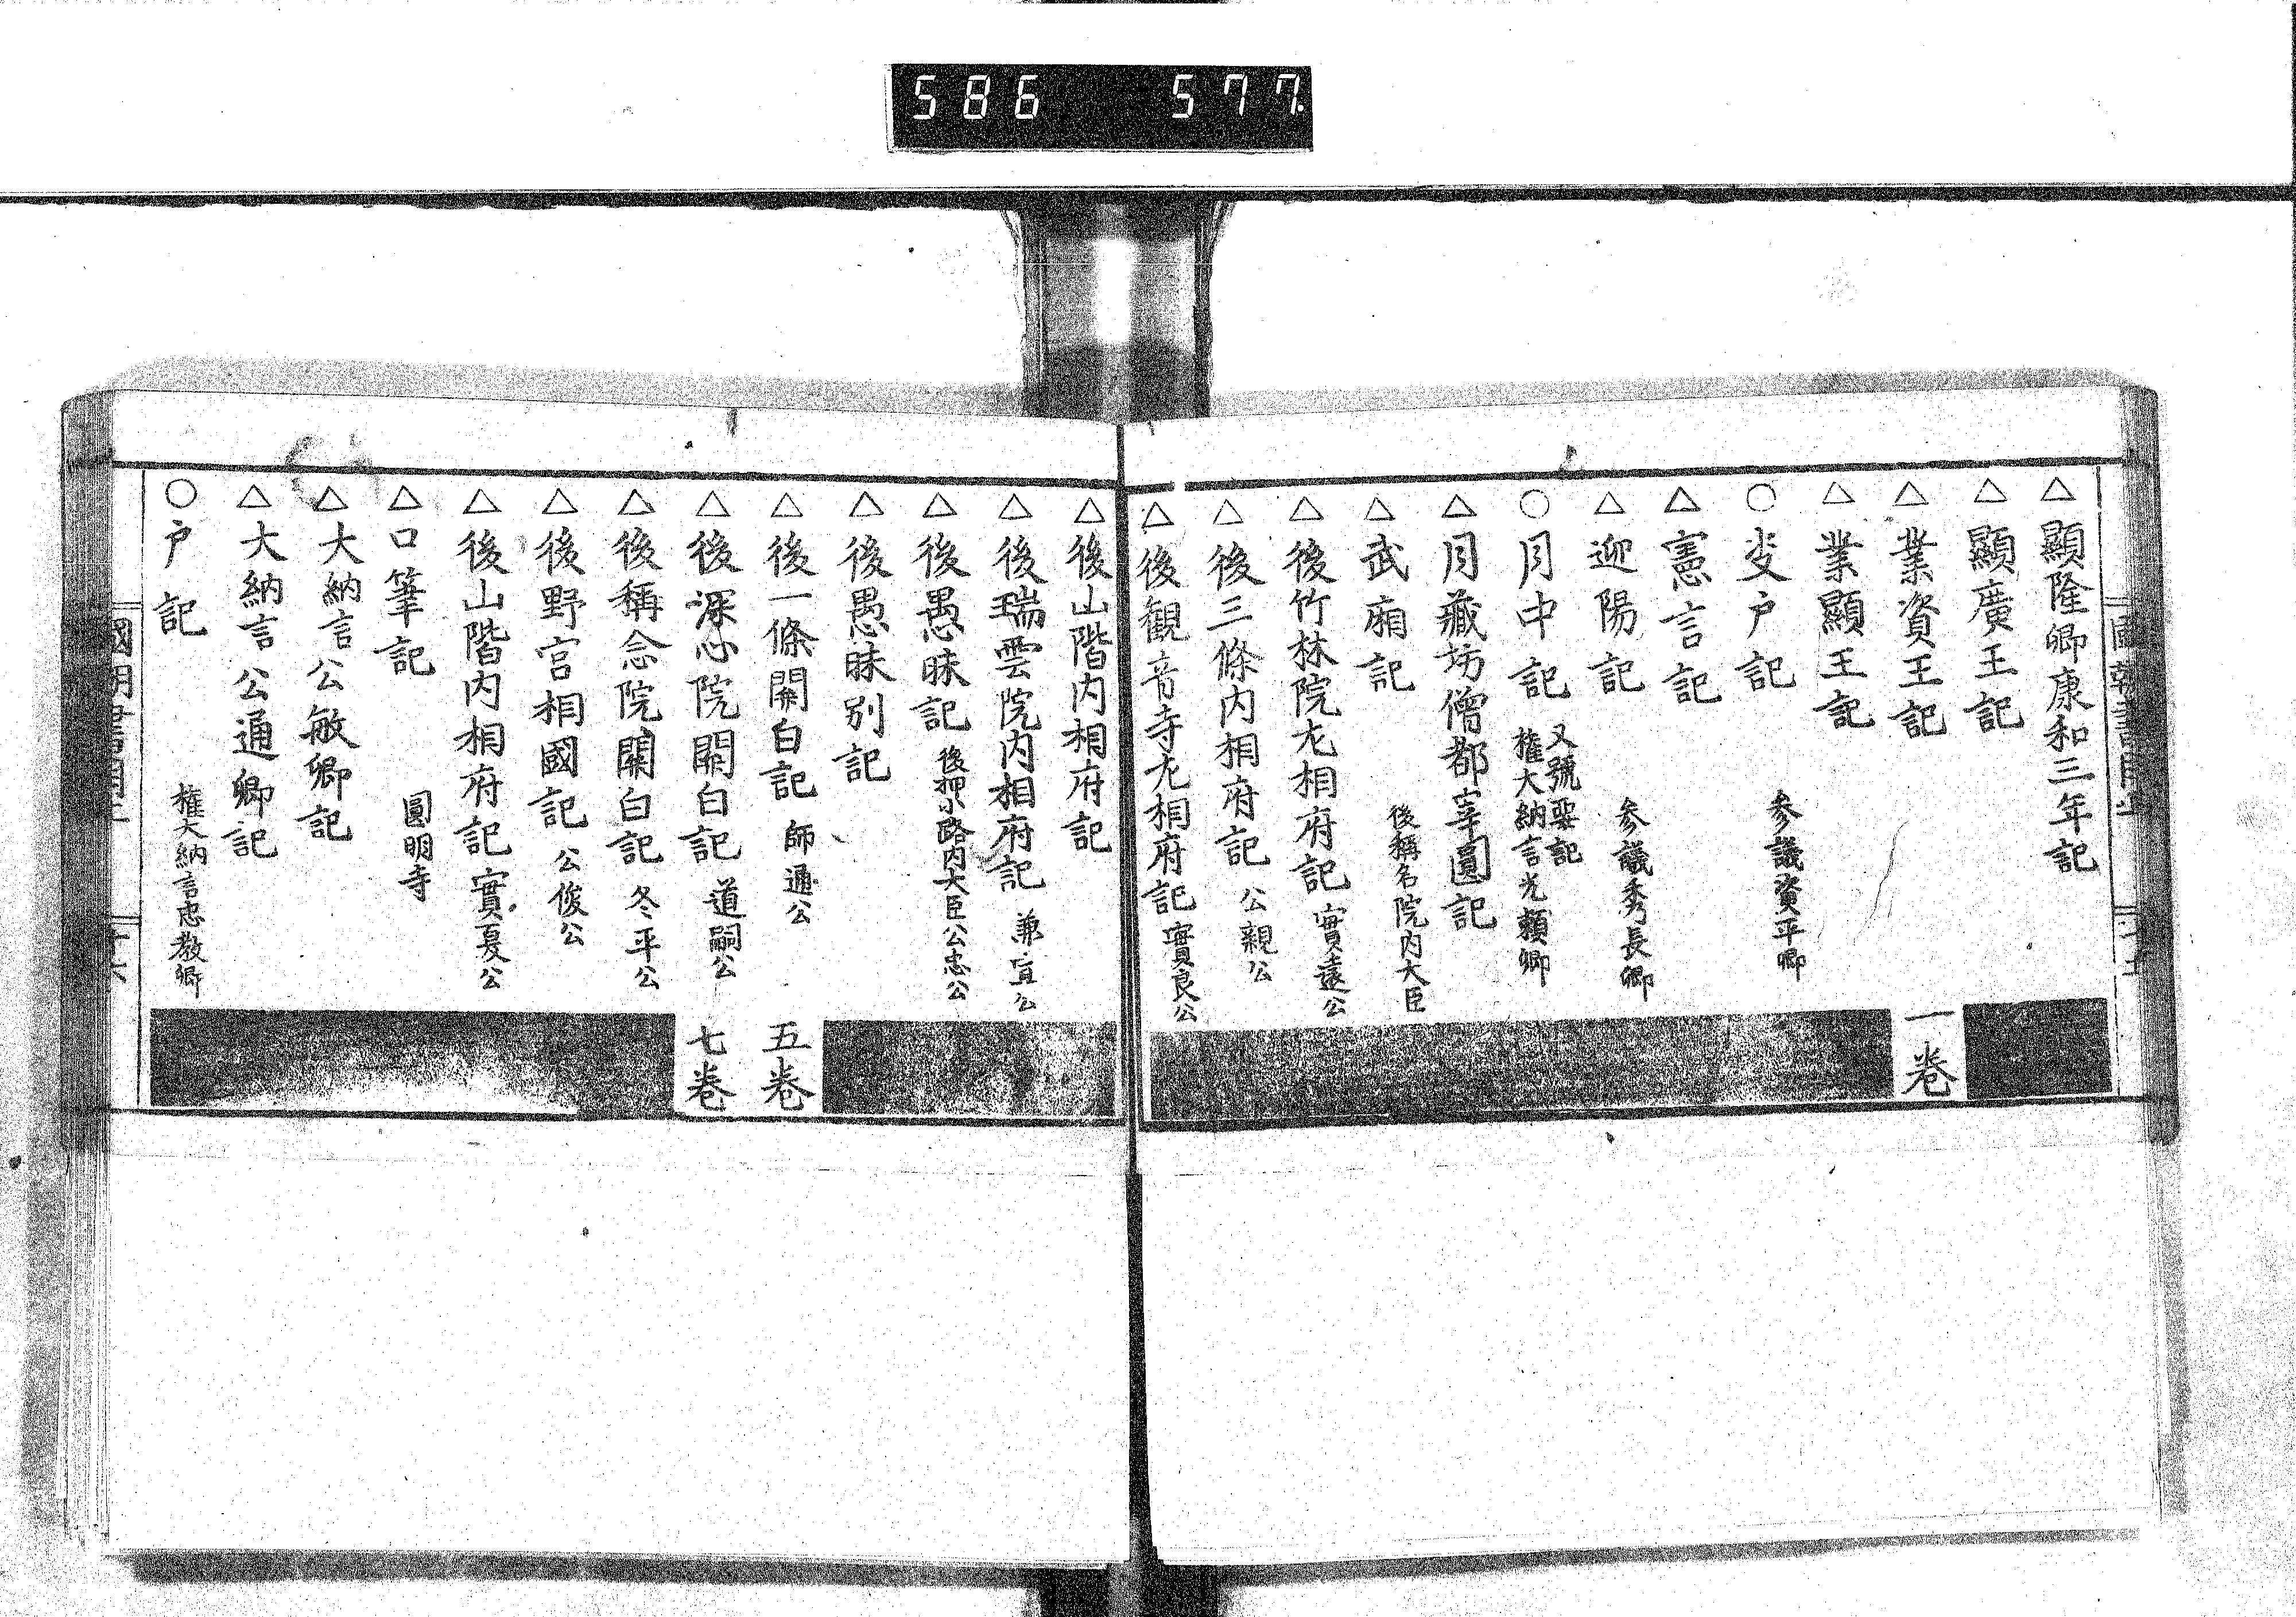 586 577
△顯隆卿康和三年記
△顯廣王記
△業資王記 一巻
△業顯王記
○㕝戸記 参議資平卿
△憲言記
△迎陽記 参議秀長卿
○月中記 又號要記 権大納言光頼卿
△月藏坊僧都宰圓記
△武廂記 後稱名院内大臣
△後竹林院左相府記 實遠公
△後三條内相府記 公親公
△後観音寺左相府記 實良公
△後山階内相府記
△後瑞雲院内相府記 兼宣公
△後愚昧記 後押小路内大臣公忠公
△後愚昧別記
△後一條關白記 師通公 五巻
△後深心院關白記 道嗣公 七巻
△後稱念院關白記 冬平公
△後野宮相國記 公俊公
△後山階内相府記 實夏公
△口筆記 圓明寺
△大納言公敏卿記
△大納言公通卿記
○戸記 権大納言忠教卿